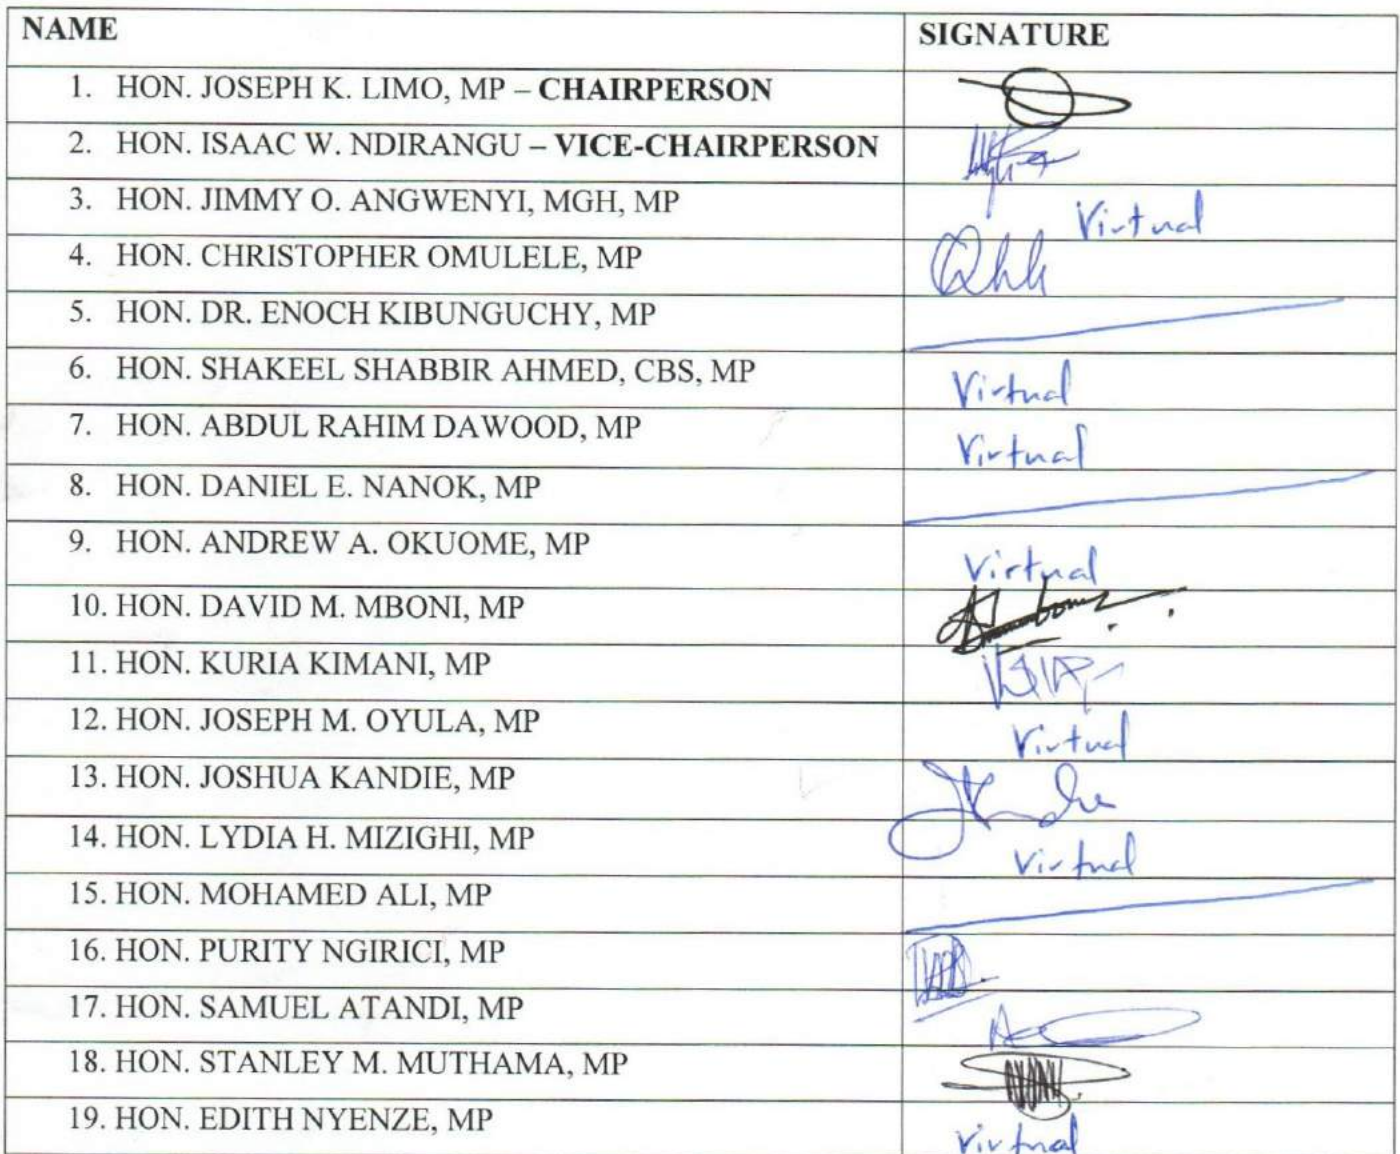 NAME SIGNATURE
1. HON. JOSEPH K. LIMO, MP – CHAIRPERSON
2. HON. ISAAC W. NDIRANGU – VICE-CHAIRPERSON
3. HON. JIMMY O. ANGWENYI, MGH, MP Virtual
4. HON. CHRISTOPHER OMULELE, MP
5. HON. DR. ENOCH KIBUNGUCHY, MP
6. HON. SHAKEEL SHABBIR AHMED, CBS, MP Virtual
7. HON. ABDUL RAHIM DAWOOD, MP Virtual
8. HON. DANIEL E. NANOK, MP
9. HON. ANDREW A. OKUOME, MP Virtual
10. HON. DAVID M. MBONI, MP
11. HON. KURIA KIMANI, MP
12. HON. JOSEPH M. OYULA, MP Virtual
13. HON. JOSHUA KANDIE, MP
14. HON. LYDIA H. MIZIGHI, MP Virtual
15. HON. MOHAMED ALI, MP
16. HON. PURITY NGIRICI, MP
17. HON. SAMUEL ATANDI, MP
18. HON. STANLEY M. MUTHAMA, MP
19. HON. EDITH NYENZE, MP Virtual